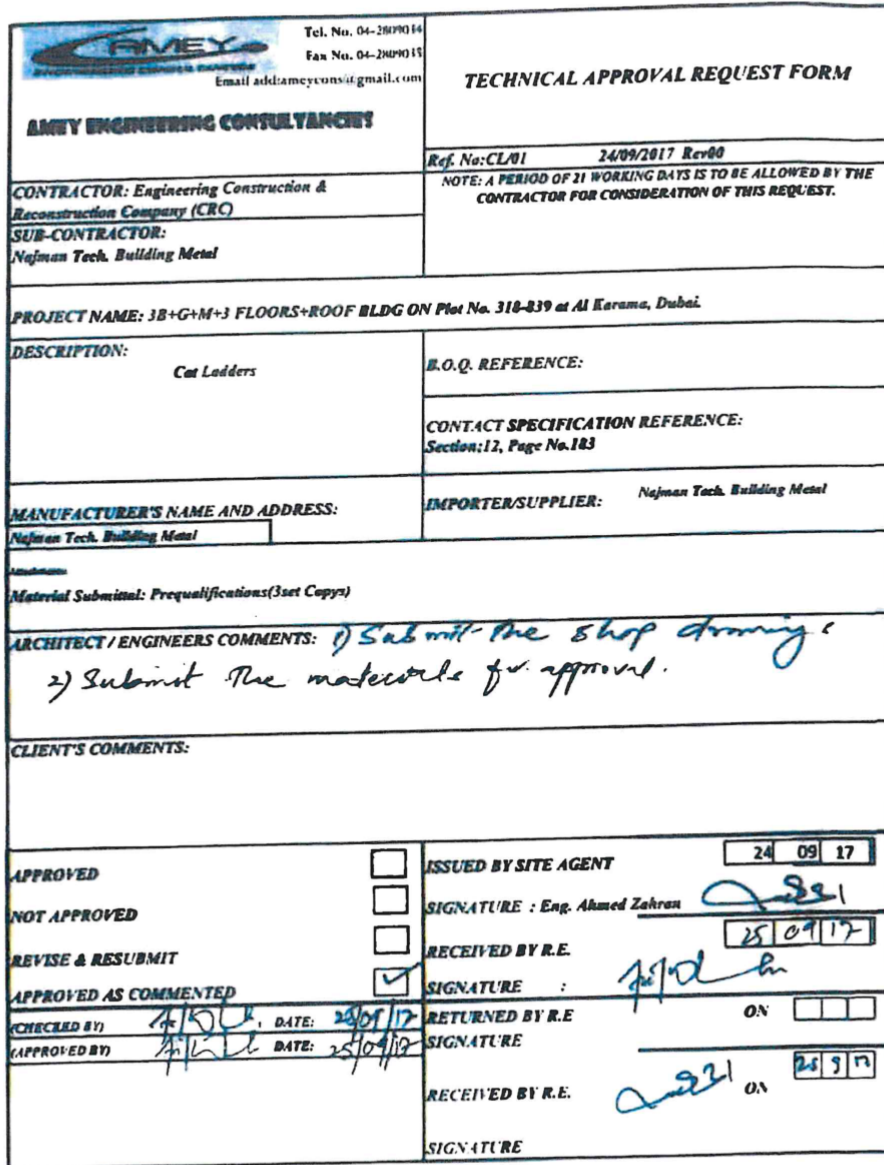 AMEY
Tel. No. 04-2809014
Fax No. 04-2809015
Email add:ameycons@gmail.com
AMEY ENGINEERING CONSULTANCIES
TECHNICAL APPROVAL REQUEST FORM
Ref. No:CL/01 24/09/2017 Rev00
NOTE: A PERIOD OF 21 WORKING DAYS IS TO BE ALLOWED BY THE
CONTRACTOR FOR CONSIDERATION OF THIS REQUEST.
CONTRACTOR: Engineering Construction &
Reconstruction Company (CRC)
SUB-CONTRACTOR:
Najman Tech. Building Metal
PROJECT NAME: 3B+G+M+3 FLOORS+ROOF BLDG ON Plot No. 318-839 at Al Karama, Dubai.
DESCRIPTION:
Cat Ladders
B.O.Q. REFERENCE:
CONTACT SPECIFICATION REFERENCE:
Section;12, Page No.183
MANUFACTURER'S NAME AND ADDRESS:
Najman Tech. Building Metal
IMPORTER/SUPPLIER: Najman Tech. Building Metal
Material Submittal: Prequalifications(3set Copys)
ARCHITECT / ENGINEERS COMMENTS: 1) Submit the shop drawings
2) Submit The materials for approval.
CLIENT'S COMMENTS:
APPROVED
NOT APPROVED
REVISE & RESUBMIT
APPROVED AS COMMENTED
(CHECKED BY) DATE: 25/09/17
(APPROVED BY) DATE: 25/09/17
ISSUED BY SITE AGENT 24 09 17
SIGNATURE : Eng. Ahmed Zahran
25 09 17
RECEIVED BY R.E.
SIGNATURE :
RETURNED BY R.E ON
SIGNATURE
RECEIVED BY R.E. ON 25 9 17
SIGNATURE